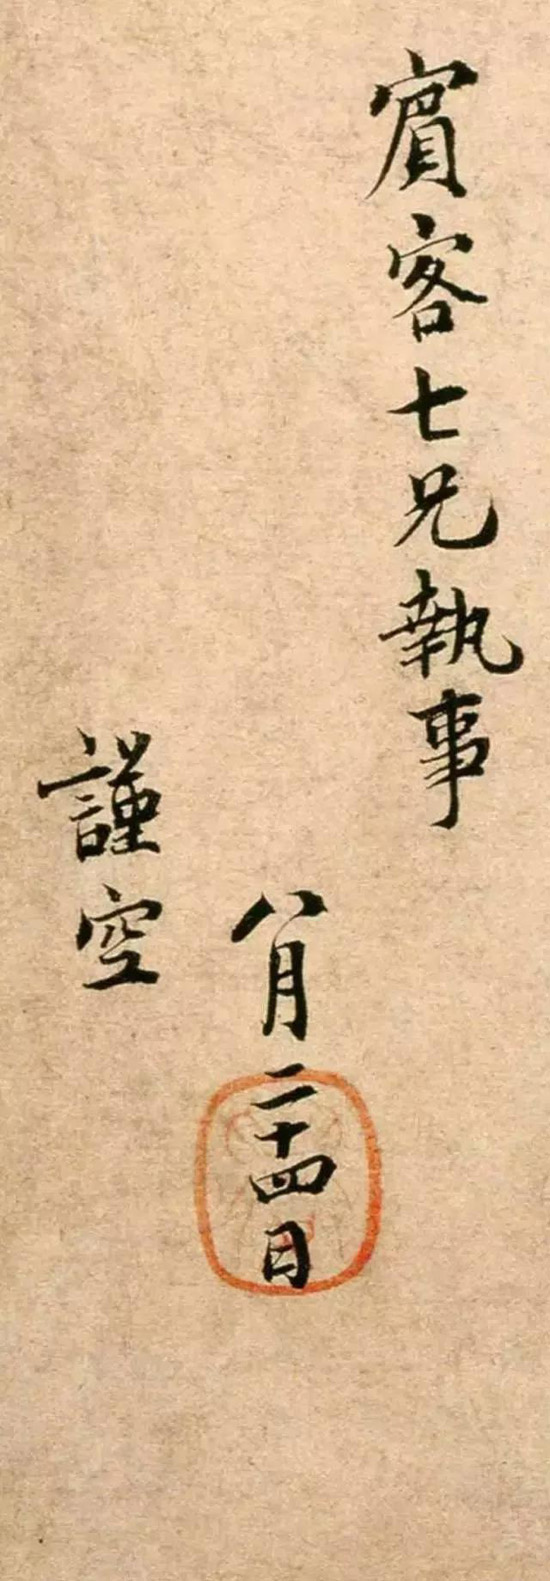 賔客七兄執事
八月二十四日
謹空